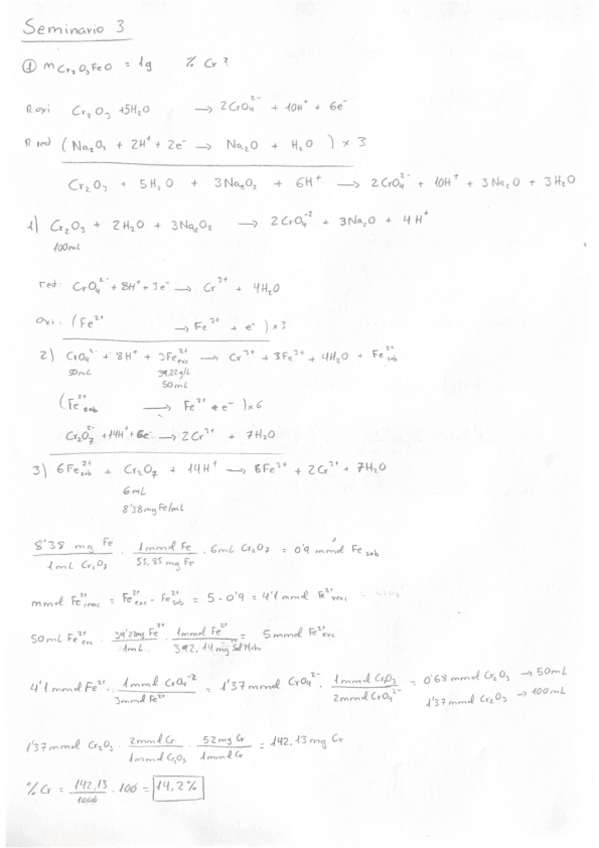 Seminario 3
① mCr₂O₃FeO = 1g % Cr?
R oxi Cr₂O₃ + 5H₂O → 2CrO₄²⁻ + 10H⁺ + 6e⁻
R red (Na₂O₂ + 2H⁺ + 2e⁻ → Na₂O + H₂O) × 3
Cr₂O₃ + 5H₂O + 3Na₂O₂ + 6H⁺ → 2CrO₄²⁻ + 10H⁺ + 3Na₂O + 3H₂O
1) Cr₂O₃ + 2H₂O + 3Na₂O₂ → 2CrO₄⁻² + 3Na₂O + 4H⁺
100mL
red: CrO₄²⁻ + 8H⁺ + 3e⁻ → Cr³⁺ + 4H₂O
oxi: (Fe²⁺ → Fe³⁺ + e⁻) × 3
2) CrO₄²⁻ + 8H⁺ + 3Fe²⁺exc → Cr³⁺ + 3Fe³⁺ + 4H₂O + Fe²⁺sob
50mL 39,22g/L
50mL
(Fe²⁺sob → Fe³⁺ + e⁻) × 6
Cr₂O₇²⁻ + 14H⁺ + 6e⁻ → 2Cr³⁺ + 7H₂O
3) 6Fe²⁺sob + Cr₂O₇ + 14H⁺ → 6Fe³⁺ + 2Cr³⁺ + 7H₂O
6mL
8'38mg Fe/mL
8'38 mg Fe / 1mL Cr₂O₇ · 1mmol Fe / 55,85 mg Fe · 6mL Cr₂O₇ = 0'9 mmol Fe sob
mmol Fe²⁺reac = Fe²⁺exc - Fe²⁺sob = 5 - 0'9 = 4'1 mmol Fe²⁺reac
50mL Fe²⁺exc · 39'22mg Fe²⁺ / 1mL · 1mmol Fe²⁺ / 392,14 mg Sal Mohr = 5mmol Fe²⁺exc
4'1 mmol Fe²⁺ · 1mmol CrO₄⁻² / 3mmol Fe²⁺ = 1'37 mmol CrO₄²⁻ · 1mmol Cr₂O₃ / 2mmol CrO₄²⁻ = 0'68 mmol Cr₂O₃ → 50mL
1'37mmol Cr₂O₃ → 100mL
1'37mmol Cr₂O₃ · 2mmol Cr / 1mmol Cr₂O₃ · 52mg Cr / 1mmol Cr = 142,13 mg Cr
% Cr = 142,13 / 1000 · 100 = 14,2%